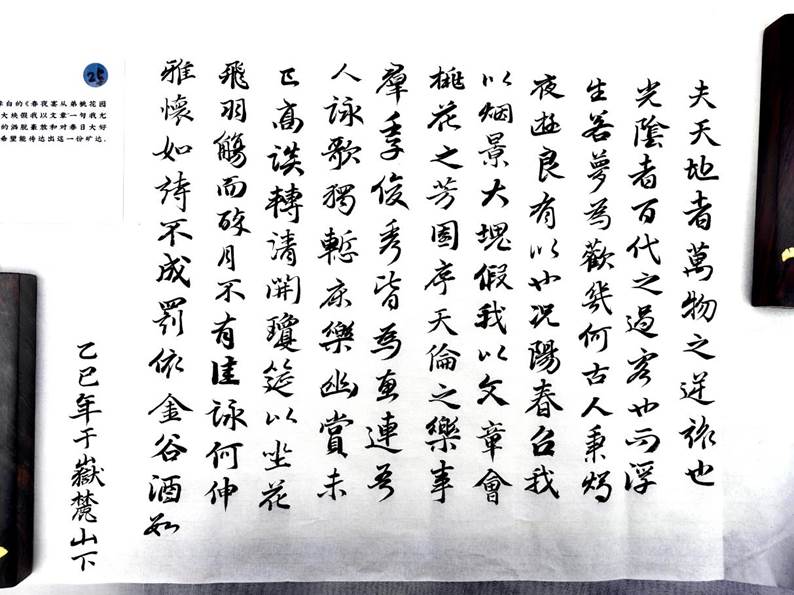 夫天地者萬物之逆旅也
光陰者百代之過客也而浮
生若夢為歡幾何古人秉燭
夜遊良有以也况陽春召我
以烟景大塊假我以文章會
桃花之芳園序天倫之樂事
羣季俊秀皆為惠連吾
人詠歌獨慙康樂幽賞未
已高談轉清開瓊筵以坐花
飛羽觴而醉月不有佳詠何伸
雅懷如詩不成罰依金谷酒數
乙巳年于嶽麓山下
25
白的《春夜宴从弟桃花园
大块假我以文章一句我尤
的洒脱豪放和对春日大好
希望能传达出这一份旷达.